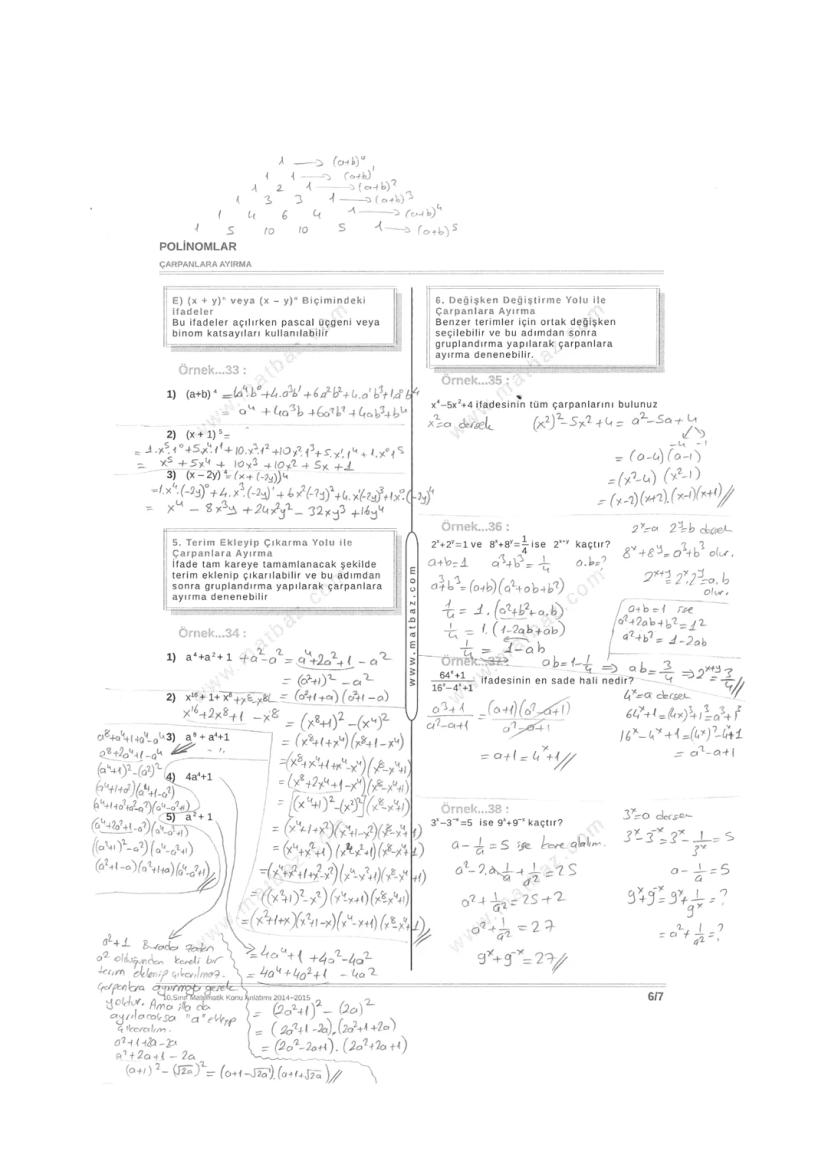 1 → (a+b)⁰
1 1 → (a+b)¹
1 2 1 → (a+b)²
1 3 3 1 → (a+b)³
1 4 6 4 1 → (a+b)⁴
1 5 10 10 5 1 → (a+b)⁵
POLİNOMLAR
ÇARPANLARA AYIRMA
E) (x + y)ⁿ veya (x – y)ⁿ Biçimindeki
İfadeler
Bu ifadeler açılırken pascal üçgeni veya
binom katsayıları kullanılabilir
Örnek...33 :
1) (a+b) ⁴ = 1a⁴.b⁰+4.a³b¹+6a²b²+4.a¹b³+1a⁰b⁴
= a⁴ + 4a³b +6a²b² +4ab³+b⁴
2) (x + 1) ⁵=
= 1.x⁵.1⁰+5x⁴.1¹+10.x³.1²+10x².1³+5.x¹.1⁴+1.x⁰.1⁵
= x⁵ + 5x⁴ + 10x³ + 10x² + 5x + 1
3) (x – 2y) ⁴= (x+(-2y))⁴
=1.x⁴.(-2y)⁰+4.x³.(-2y)¹+6x²(-2y)²+4.x(-2y)³+1x⁰.(-2y)⁴
= x⁴ - 8x³y + 24x²y² - 32xy³ + 16y⁴
5. Terim Ekleyip Çıkarma Yolu ile
Çarpanlara Ayırma
İfade tam kareye tamamlanacak şekilde
terim eklenip çıkarılabilir ve bu adımdan
sonra gruplandırma yapılarak çarpanlara
ayırma denenebilir
Örnek...34 :
1) a⁴+a²+ 1 +a²-a² = a⁴+2a²+1 - a²
= (a²+1)² - a²
= (a²+1+a)(a²+1-a)
2) x¹⁶+ 1+ x⁸ +x⁸-x⁸
x¹⁶+2x⁸+1 -x⁸ = (x⁸+1)²-(x⁴)²
= (x⁸+1+x⁴)(x⁸+1-x⁴)
=(x⁸+x⁴+1+x⁴-x⁴)(x⁸-x⁴+1)
=(x⁸+2x⁴+1-x⁴)(x⁸-x⁴+1)
= [(x⁴+1)²-(x²)²](x⁸-x⁴+1)
= (x⁴+1+x²)(x⁴+1-x²)(x⁸-x⁴+1)
= (x⁴+x²+1)(x⁴-x²+1)(x⁸-x⁴+1)
=(x⁴+x²+1+x²-x²)(x⁴-x²+1)(x⁸-x⁴+1)
=((x²+1)²-x²)(x⁴-x²+1)(x⁸-x⁴+1)
=(x²+1+x)(x²+1-x)(x⁴-x²+1)(x⁸-x⁴+1)
3) a⁸ + a⁴+1
a⁸+a⁴+1+a⁴-a⁴
a⁸+2a⁴+1-a⁴
(a⁴+1)²-(a²)²
(a⁴+1+a²)(a⁴+1-a²)
(a⁴+1+a²+a²-a²)(a⁴-a²+1)
(a⁴+2a²+1-a²)(a⁴-a²+1)
((a²+1)²-a²)(a⁴-a²+1)
(a²+1-a)(a²+1+a)(a⁴-a²+1)
4) 4a⁴+1
=4a⁴+1 +4a²-4a²
= 4a⁴+4a²+1 - 4a²
= (2a²+1)² - (2a)²
= (2a²+1-2a).(2a²+1+2a)
= (2a²-2a+1).(2a²+2a+1)
5) a² + 1
a²+1 Burada zaten
a² olduğundan kareli bir
terim eklenip çıkarılmaz.
Çarpanlara ayırmaya gerek
yoktur. Ama illa da
ayrılacaksa "a" ekleyip
çıkaralım.
a²+1+2a-2a
a²+2a+1-2a
(a+1)²-(√2a)²=(a+1-√2a).(a+1+√2a)
10.Sınıf Matematik Konu Anlatımı 2014–2015
www.matbaz.com
6. Değişken Değiştirme Yolu ile
Çarpanlara Ayırma
Benzer terimler için ortak değişken
seçilebilir ve bu adımdan sonra
gruplandırma yapılarak çarpanlara
ayırma denenebilir.
Örnek...35 :
x⁴–5x²+4 ifadesinin tüm çarpanlarını bulunuz
x²=a dersek (x²)²-5x²+4= a²-5a+4
-4 -1
= (a-4)(a-1)
=(x²-4)(x²-1)
= (x-2)(x+2).(x-1)(x+1)
Örnek...36 :
2ˣ=a 2ʸ=b dersek
2ˣ+2ʸ=1 ve 8ˣ+8ʸ=1/4 ise 2ˣ⁺ʸ kaçtır?
8ˣ+8ʸ=a³+b³ olur.
a+b=1 a³+b³=1/4 a.b=?
2ˣ⁺ʸ=2ˣ.2ʸ=a.b
olur.
a³+b³=(a+b)(a²-ab+b²)
1/4 = 1.(a²+b²-a.b)
1/4 = 1.(1-2ab-ab)
1/4 = 1-ab
a+b=1 ise
a²+2ab+b²=1²
a²+b²=1-2ab
ab=1-1/4 ⇒ ab=3/4 ⇒2ˣ⁺ʸ=3/4
Örnek...37 :
64ˣ+1 / 16ˣ–4ˣ+1 ifadesinin en sade hali nedir?
4ˣ=a dersek
64ˣ+1=(4x)³+1³=a³+1³
16ˣ-4ˣ+1=(4ˣ)²-4ˣ+1
= a²-a+1
a³+1 / a²-a+1 = (a+1)(a²-a+1) / a²-a+1
= a+1=4ˣ+1
Örnek...38 :
3ˣ–3⁻ˣ=5 ise 9ˣ+9⁻ˣ kaçtır?
3ˣ=a dersen
3ˣ-3⁻ˣ=3ˣ-1/3ˣ=5
a-1/a=5
9ˣ+9⁻ˣ=9ˣ+1/9ˣ=?
=a²+1/a²=?
a-1/a=5 ise kare alalım.
a²-2.a.1/a+1/a²=25
a²+1/a²=25+2
a²+1/a²=27
9ˣ+9⁻ˣ=27
6/7